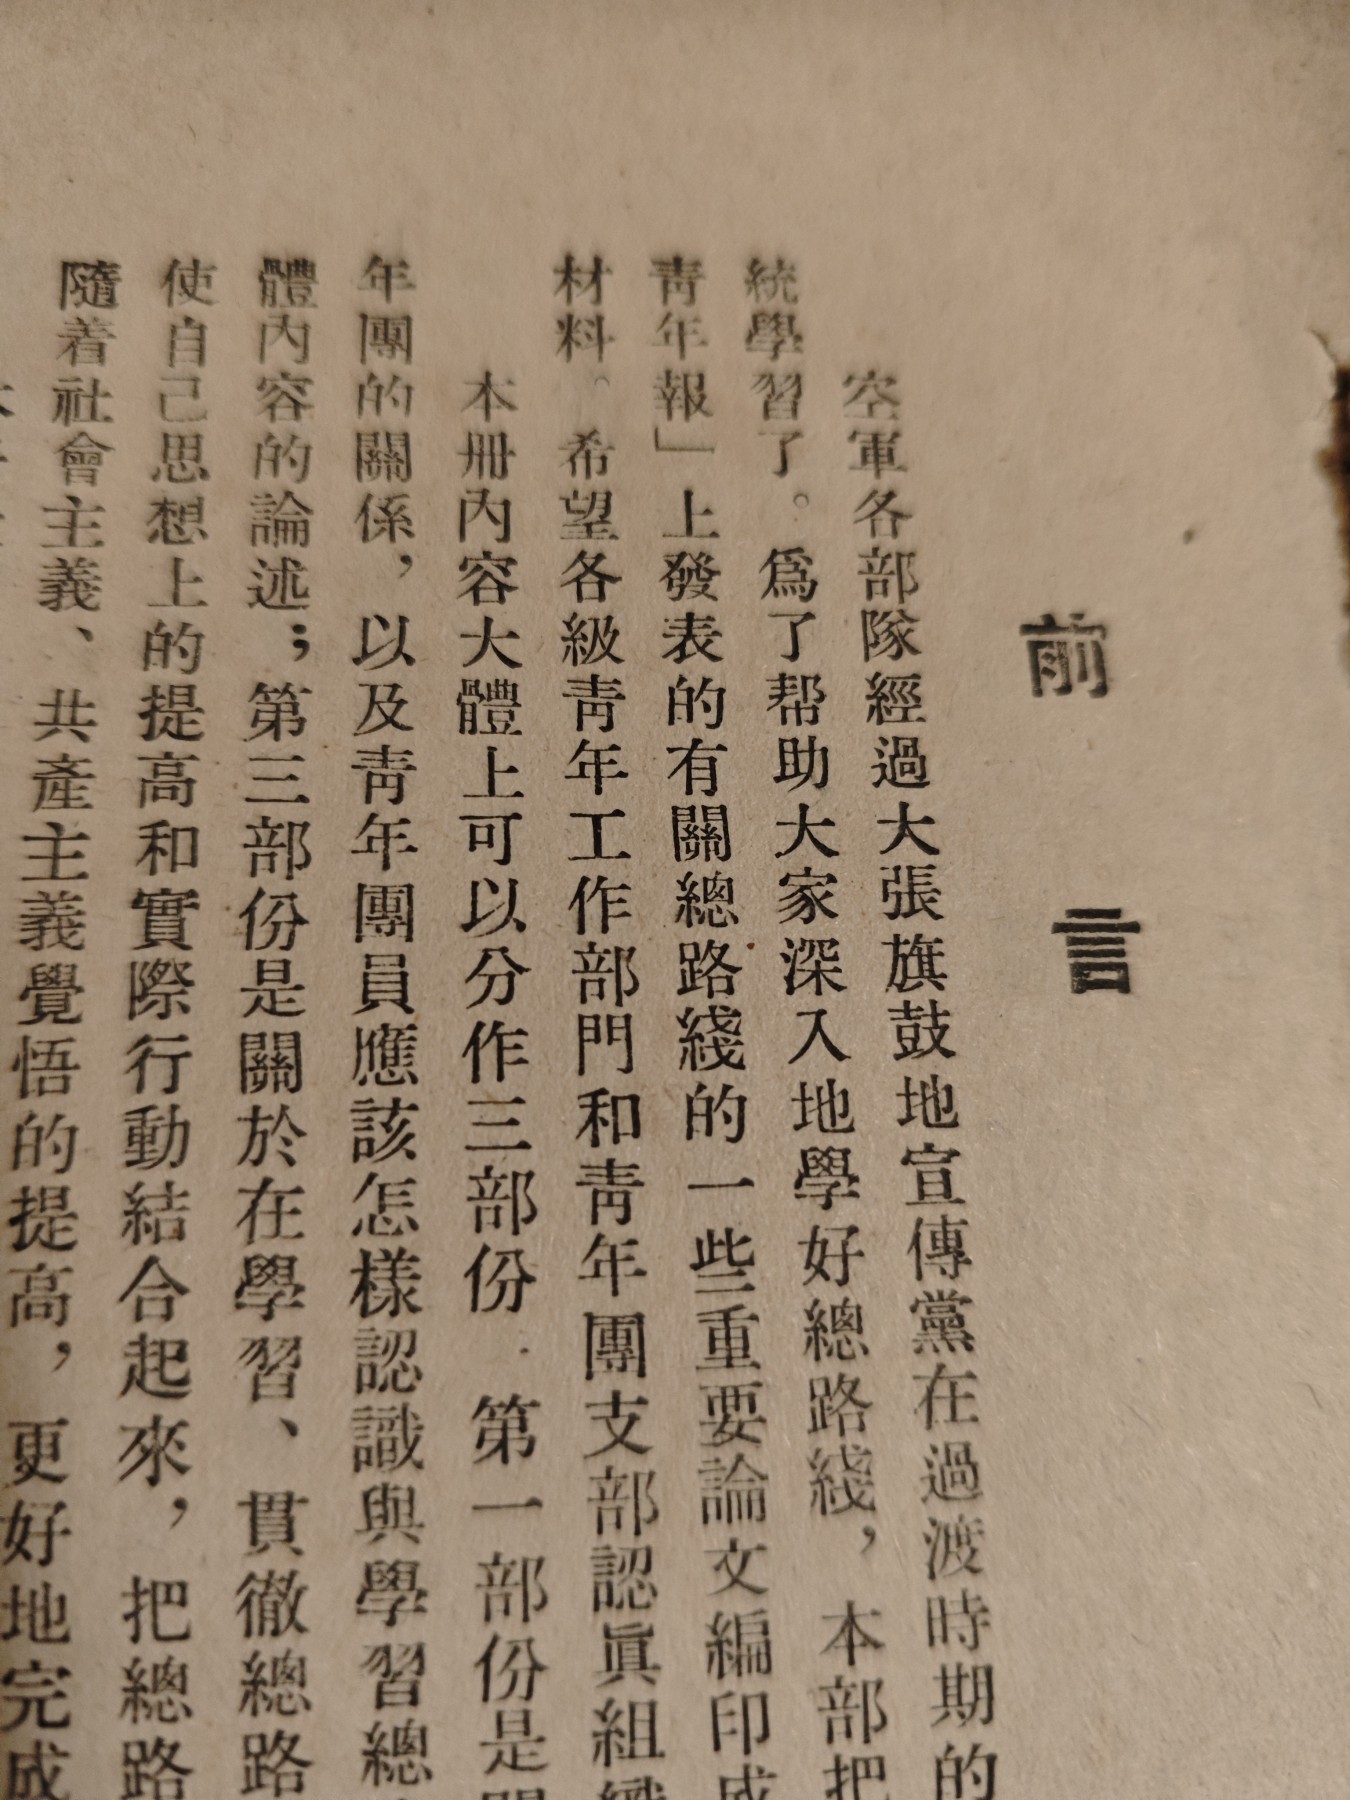 前言
空軍各部隊經過大張旗鼓地宣傳黨在過渡時期的
統學習了。爲了帮助大家深入地學好總路綫，本部把
靑年報」上發表的有關總路綫的一些重要論文編印成
材料。希望各級靑年工作部門和靑年團支部認眞組織
本册內容大體上可以分作三部份．第一部份是關
年團的關係，以及靑年團員應該怎樣認識與學習總
體內容的論述；第三部份是關於在學習、貫徹總路
使自己思想上的提高和實際行動結合起來，把總路
隨着社會主義、共產主義覺悟的提高，更好地完成